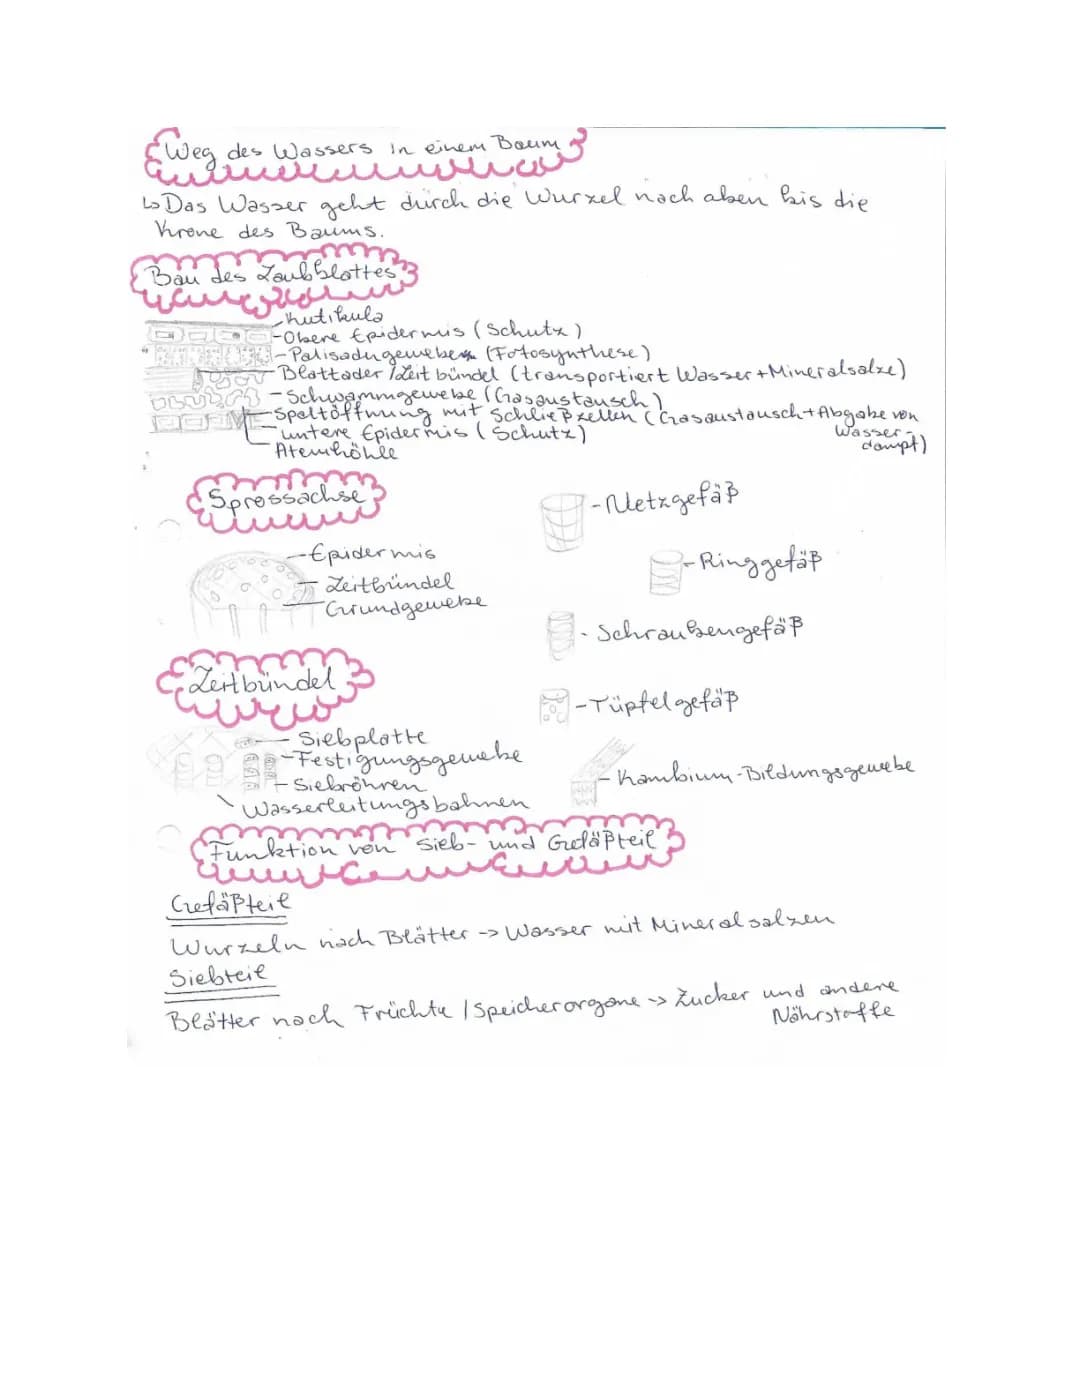 Weg des Wassers in einem Baum
↳ Das Wasser geht durch die Wurzel nach oben bis die
Krone des Baums.
Bau des Laubblattes
Kutikula
-Obere Epidermis (Schutz)
-Palisadengewebe (Fotosynthese)
-Blattader/Leitbündel (transportiert Wasser+Mineralsalze)
-Schwammgewebe (Gasaustausch)
-Spaltöffnung mit Schließzellen (Gasaustausch+Abgabe von
Wasser-
dampf)
untere Epidermis (Schutz)
Atemhöhle
Sprossachse
-Epidermis
-Leitbündel
Grundgewebe
-Netzgefäß
-Ringgefäß
-Schraubengefäß
-Tüpfelgefäß
-Kambium-Bildungsgewebe
Leitbündel
Siebplatte
-Festigungsgewebe
-Siebröhren
Wasserleitungsbahnen
Funktion von Sieb- und Gefäßteil
Gefäßteil
Wurzeln nach Blätter -> Wasser mit Mineralsalzen
Siebteil
Blätter nach Früchte/Speicherorgane -> Zucker und andere
Nährstoffe